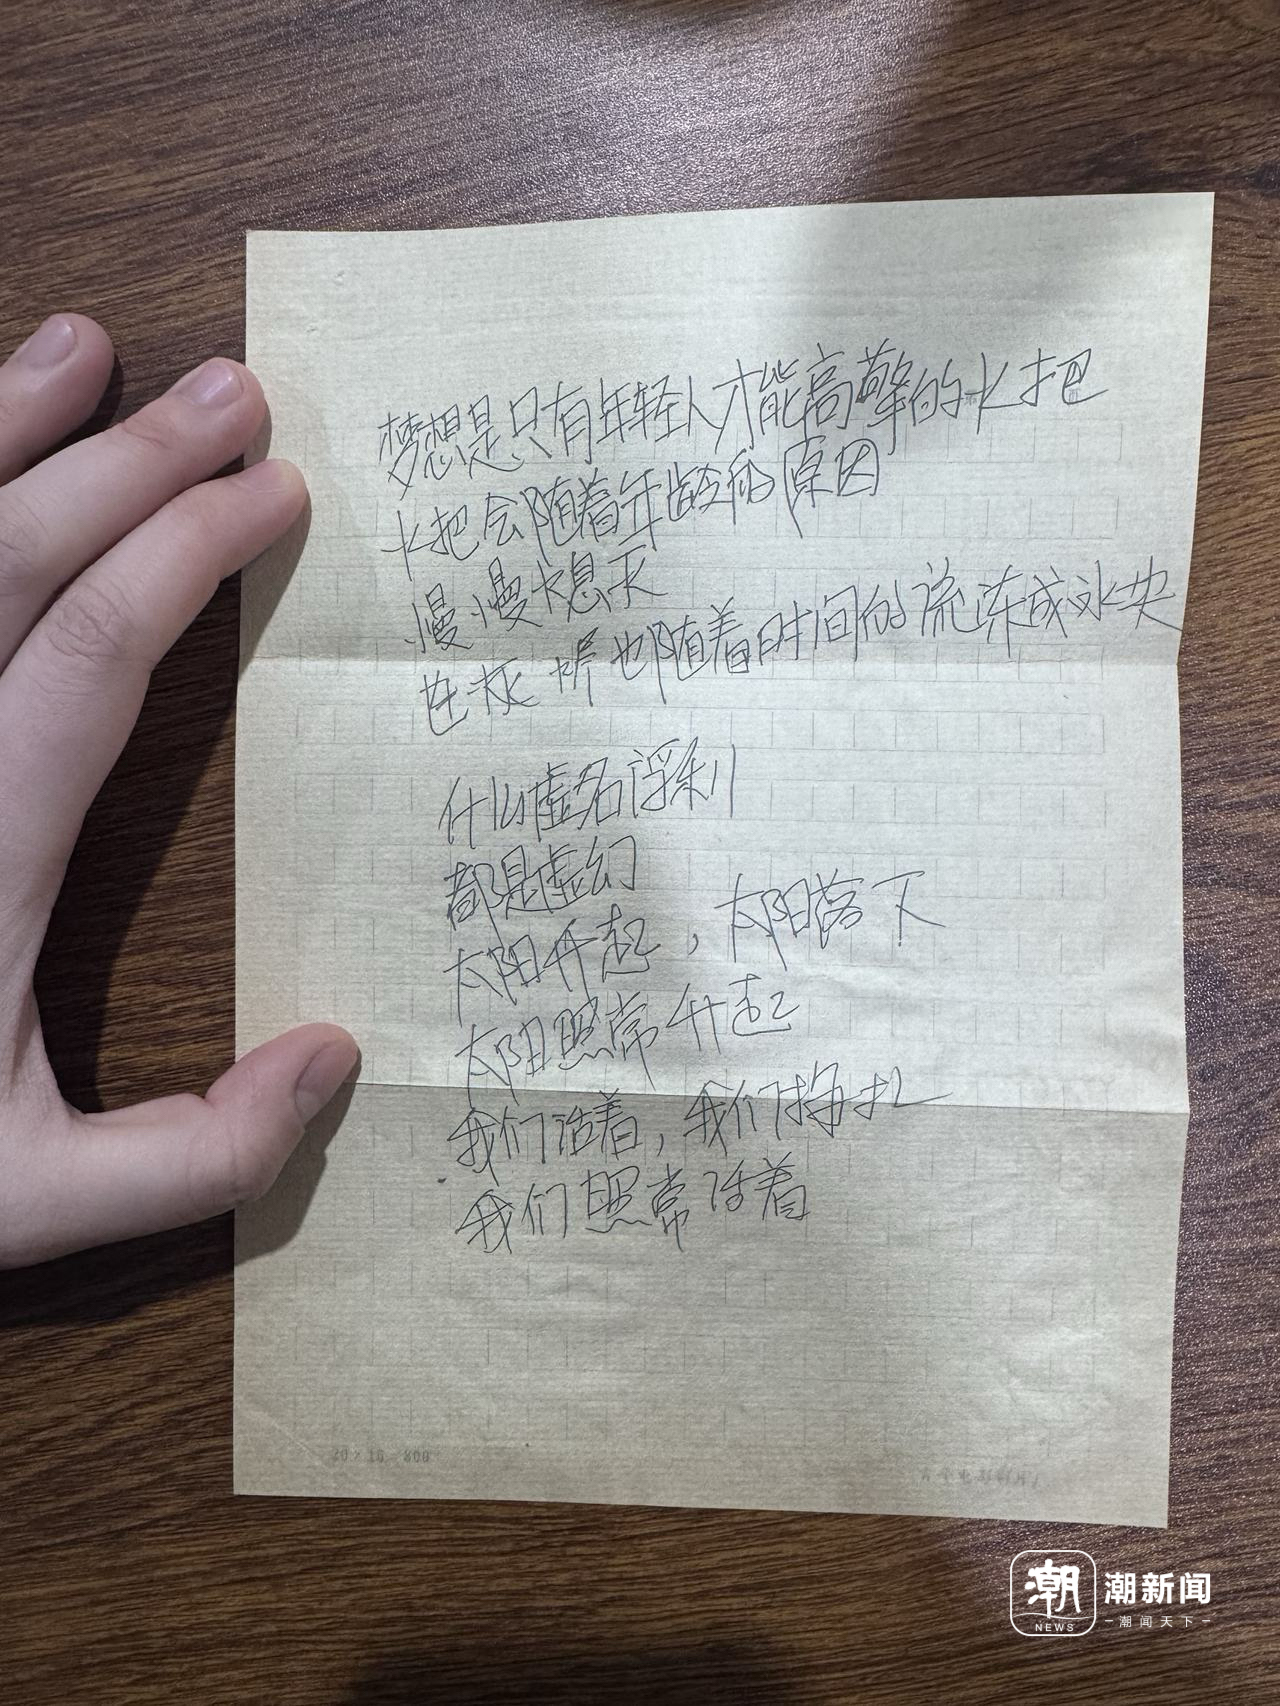 梦想是只有年轻人才能高擎的火把
火把会随着年龄的原因
慢慢火息灭
连灰烬也随着时间的流冻成冰央
什么虚名浮利
都是虚幻
太阳升起，太阳落下
太阳照常升起
我们活着，我们挣扎
我们照常活着
20×16=800
潮 潮新闻
NEWS 潮闻天下